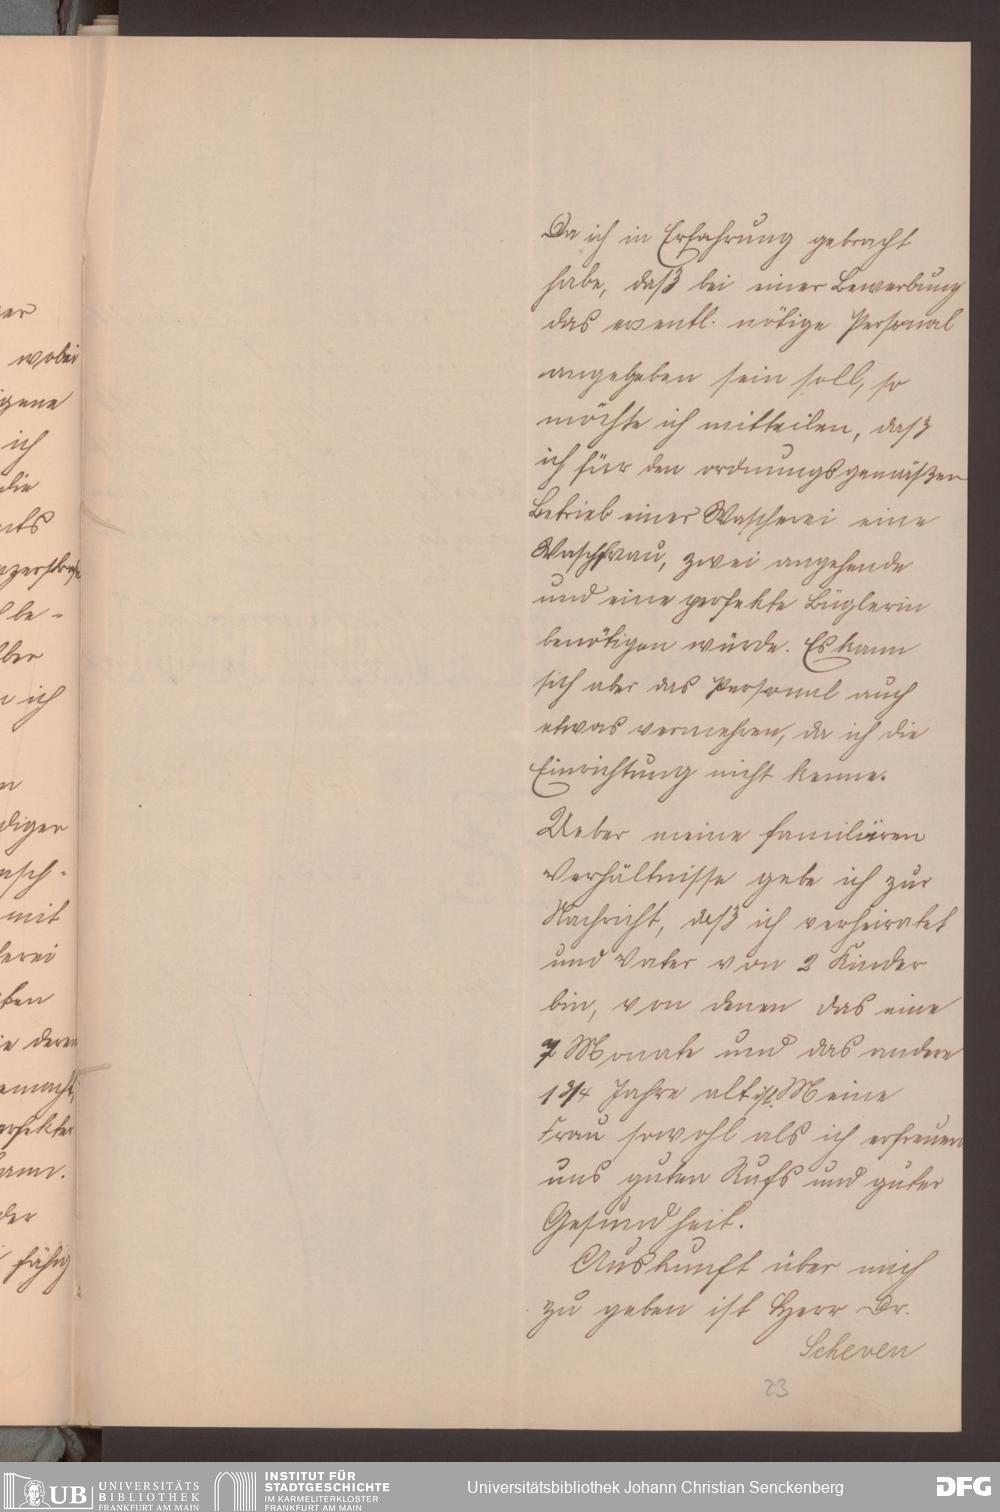 er
wobei
igene
ich
die
nts
be-
ber
ich
n
diger
asch-
mit
erei
ten
ie deren
emacht,
erfekte
ann.
der
fähig
Da ich in Erfahrung gebracht
habe, daß bei einer Bewerbung
das eventl. nötige Personal
angegeben sein soll, so
möchte ich mitteilen, daß
ich für den ordnungsgemäßen
Betrieb einer Wascherei eine
Waschfrau, zwei angehende
und eine perfekte Büglerin
benötigen würde. Es kann
sich aber das Personal auch
etwas vermehren, da ich die
Einrichtung nicht kenne.
Ueber meine familiären
Verhältnisse gebe ich zur
Nachricht, daß ich verheiratet
und Vater von 2 Kinder
bin, von denen das eine
7 Monate und das andere
1 3/4 Jahre alt ist. Meine
Frau sowohl als ich erfreuen
uns guten Rufs und guter
Gesundheit.
Auskunft über mich
zu geben ist Herr Dr.
Scheven
23
UB UNIVERSITÄTS
BIBLIOTHEK
FRANKFURT AM MAIN
INSTITUT FÜR
STADTGESCHICHTE
IM KARMELITERKLOSTER
FRANKFURT AM MAIN
Universitätsbibliothek Johann Christian Senckenberg
DFG